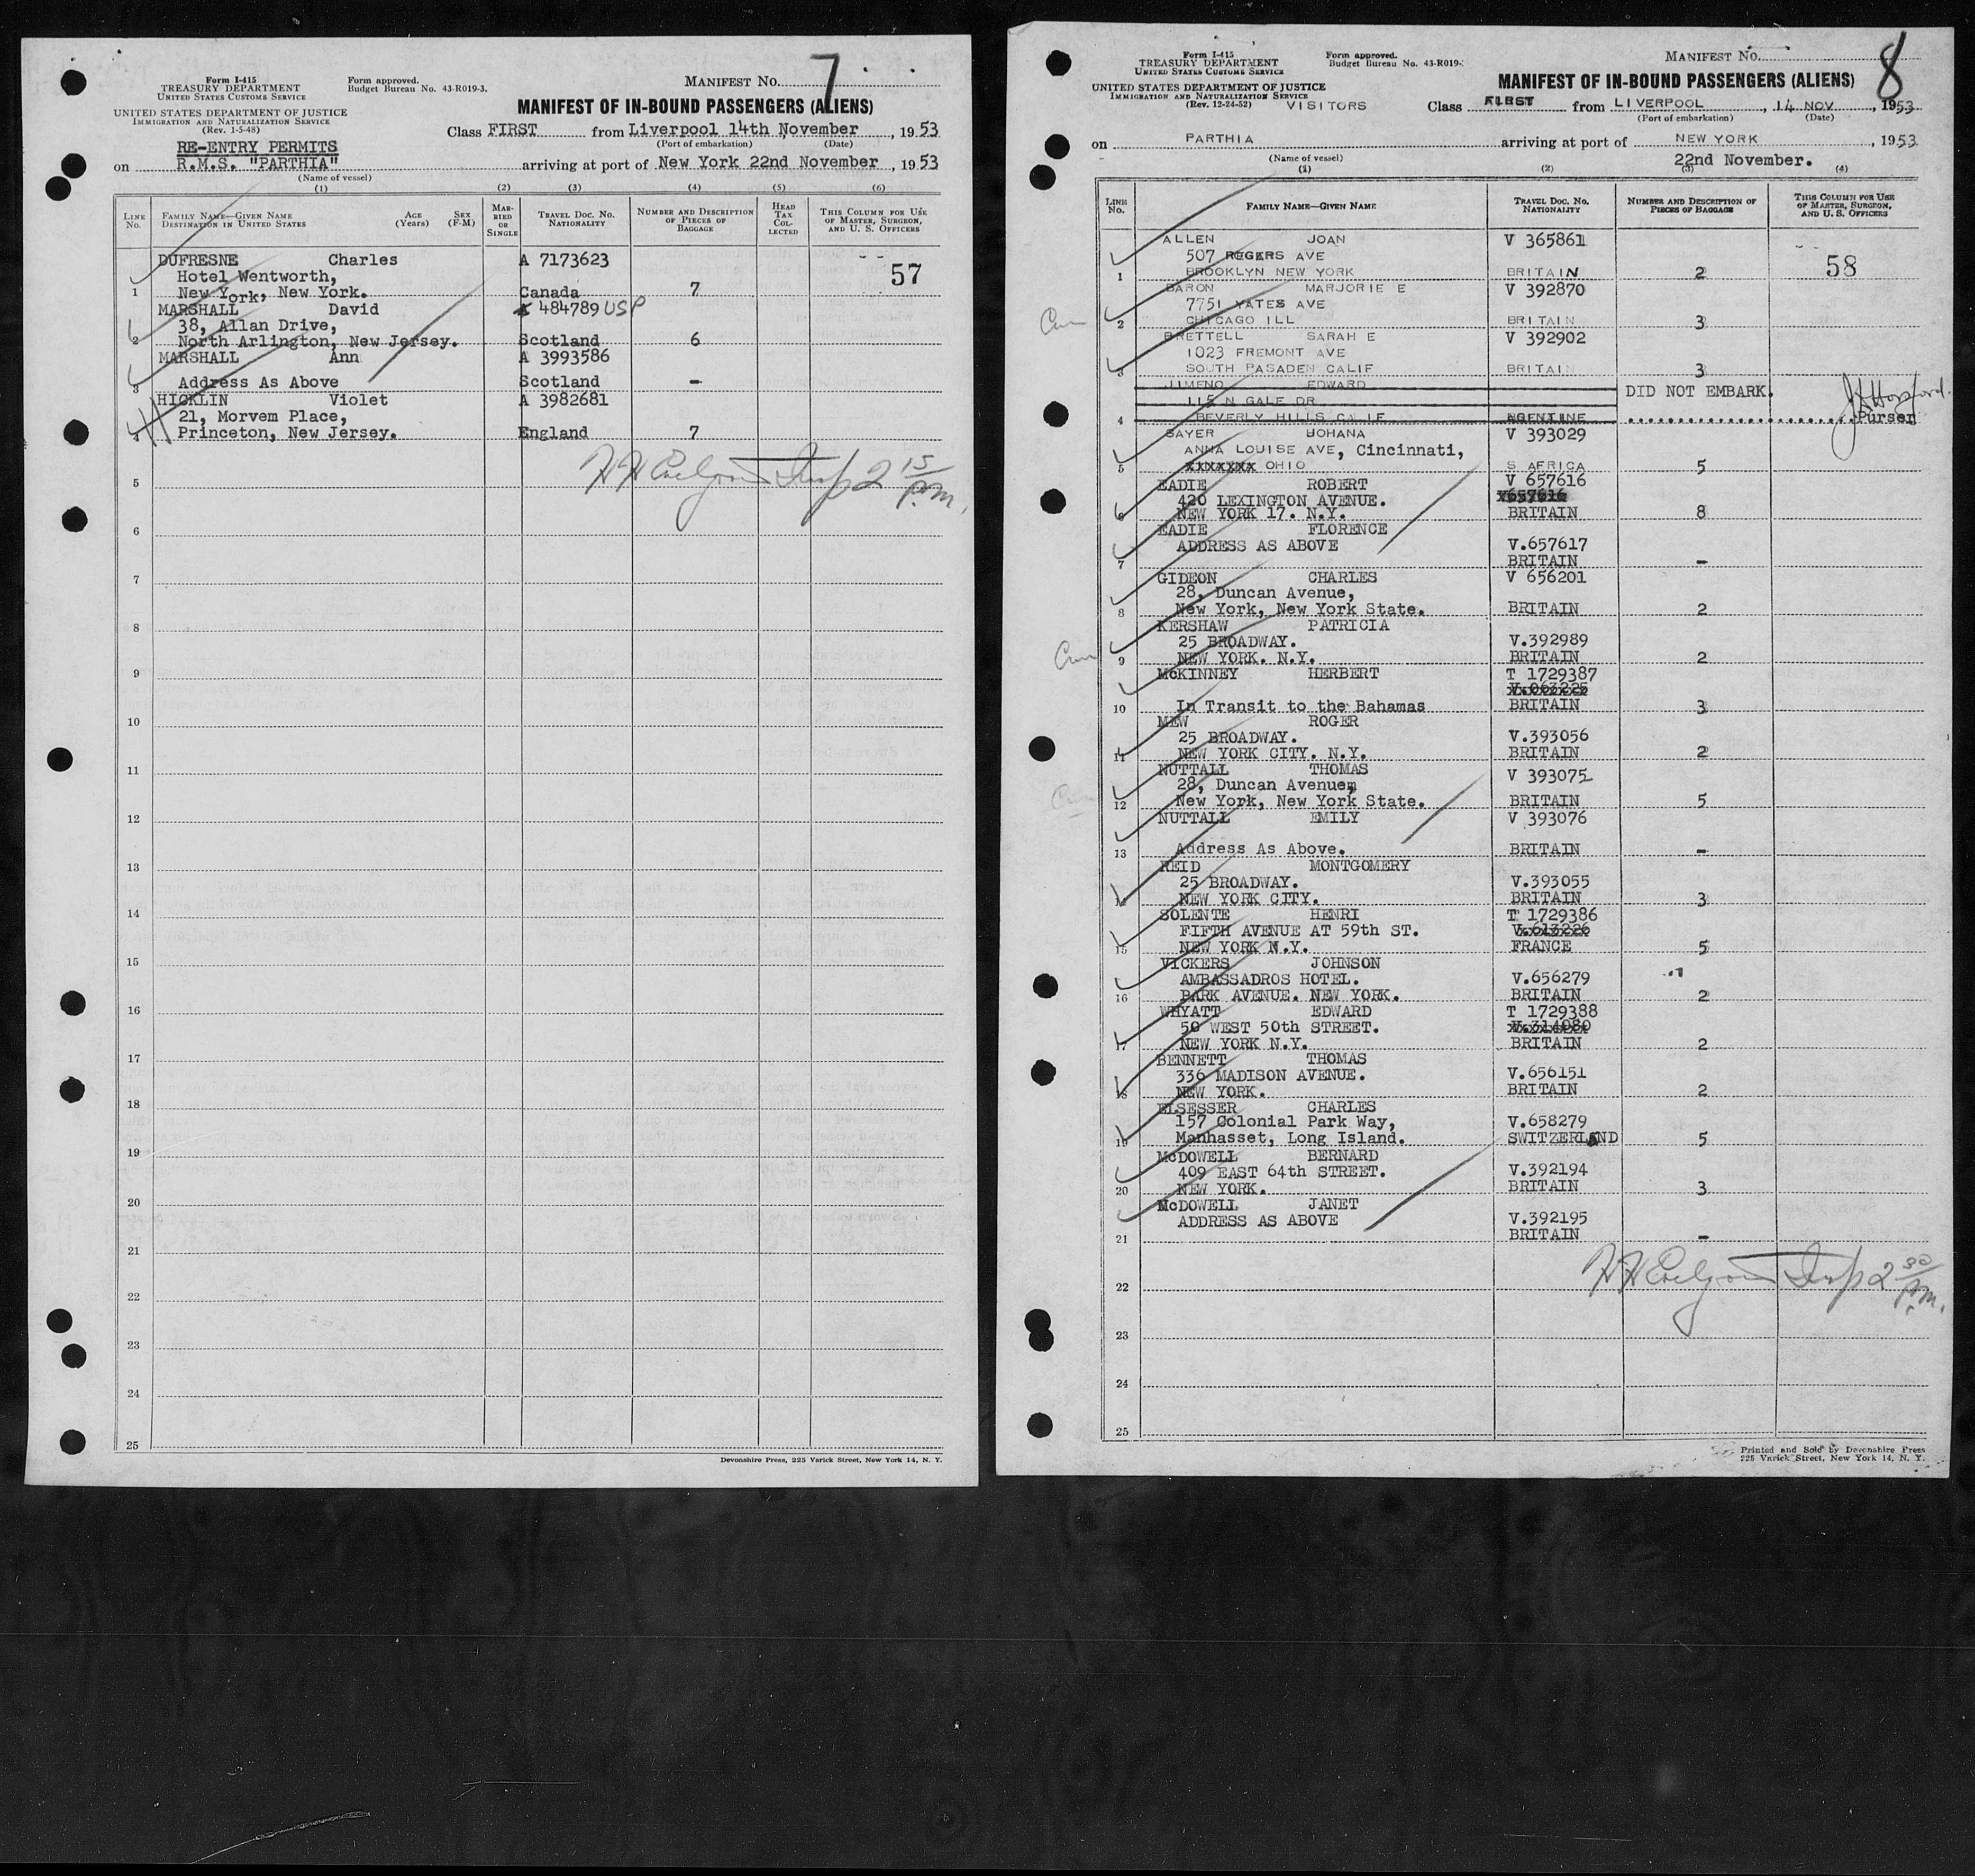 Form I-415
TREASURY DEPARTMENT
UNITED STATES CUSTOMS SERVICE
Form approved.
Budget Bureau No. 43-R019-3.
MANIFEST NO. 7
UNITED STATES DEPARTMENT OF JUSTICE
IMMIGRATION AND NATURALIZATION SERVICE
(Rev. 1-5-48)
MANIFEST OF IN-BOUND PASSENGERS (ALIENS)
Class FIRST from Liverpool 14th November, 1953
(Port of embarkation) (Date)
RE-ENTRY PERMITS
on R.M.S. "PARTHIA" arriving at port of New York 22nd November, 1953
(Name of vessel)
(1) (2) (3) (4) (5) (6)
LINE No. FAMILY NAME—GIVEN NAME DESTINATION IN UNITED STATES AGE (Years) SEX (F-M) MARRIED OR SINGLE TRAVEL DOC. NO. NATIONALITY NUMBER AND DESCRIPTION OF PIECES OF BAGGAGE HEAD TAX COLLECTED THIS COLUMN FOR USE OF MASTER, SURGEON, AND U. S. OFFICERS
DUFRESNE Charles A 7173623 57
Hotel Wentworth,
1 New York, New York. Canada 7
MARSHALL David 484789 USP
38, Allan Drive,
2 North Arlington, New Jersey. Scotland 6
MARSHALL Ann A 3993586
3 Address As Above Scotland -
HICKLIN Violet A 3982681
21, Morvem Place,
4 Princeton, New Jersey. England 7
5 Insp 2 15 P.M.
6
7
8
9
10
11
12
13
14
15
16
17
18
19
20
21
22
23
24
25
Devonshire Press, 225 Varick Street, New York 14, N. Y.
Form I-415
TREASURY DEPARTMENT
UNITED STATES CUSTOMS SERVICE
Form approved.
Budget Bureau No. 43-R019-
MANIFEST NO. 8
UNITED STATES DEPARTMENT OF JUSTICE
IMMIGRATION AND NATURALIZATION SERVICE
(Rev. 12-24-52) VISITORS
MANIFEST OF IN-BOUND PASSENGERS (ALIENS)
Class FIRST from LIVERPOOL, 14 NOV, 1953
(Port of embarkation) (Date)
on PARTHIA arriving at port of NEW YORK, 1953
(Name of vessel) 22nd November.
(1) (2) (3) (4)
LINE No. FAMILY NAME—GIVEN NAME TRAVEL DOC. NO. NATIONALITY NUMBER AND DESCRIPTION OF PIECES OF BAGGAGE THIS COLUMN FOR USE OF MASTER, SURGEON, AND U. S. OFFICERS
ALLEN JOAN V 365861
507 ROGERS AVE 58
1 BROOKLYN NEW YORK BRITAIN 2
BARON MARJORIE E V 392870
7751 YATES AVE
2 CHICAGO ILL BRITAIN 3
BRETTELL SARAH E V 392902
1023 FREMONT AVE
3 SOUTH PASADEN CALIF BRITAIN 3
JIMENO EDWARD
115 N GALE DR DID NOT EMBARK.
4 BEVERLY HILLS CALIF AGENTINE Purser
SAYER JOHANA V 393029
ANNA LOUISE AVE, Cincinnati,
5 xxxxxxx OHIO S AFRICA 5
EADIE ROBERT V 657616
420 LEXINGTON AVENUE. V657616
6 NEW YORK 17. N.Y. BRITAIN 8
EADIE FLORENCE
ADDRESS AS ABOVE V.657617
7 BRITAIN -
GIDEON CHARLES V 656201
28, Duncan Avenue,
8 New York, New York State. BRITAIN 2
KERSHAW PATRICIA
25 BROADWAY. V.392989
9 NEW YORK. N.Y. BRITAIN 2
McKINNEY HERBERT T 1729387
10 In Transit to the Bahamas BRITAIN 3
MEW ROGER
25 BROADWAY. V.393056
11 NEW YORK CITY. N.Y. BRITAIN 2
NUTTALL THOMAS V 393075
28, Duncan Avenuem
12 New York, New York State. BRITAIN 5
NUTTALL EMILY V 393076
13 Address As Above. BRITAIN -
REID MONTGOMERY
25 BROADWAY. V.393055
14 NEW YORK CITY. BRITAIN 3
SOLENTE HENRI T 1729386
FIFTH AVENUE AT 59th ST. V.613226
15 NEW YORK N.Y. FRANCE 5
VICKERS JOHNSON
AMBASSADROS HOTEL. V.656279
16 PARK AVENUE. NEW YORK. BRITAIN 2
WHYATT EDWARD T 1729388
50 WEST 50th STREET. V.314080
17 NEW YORK N.Y. BRITAIN 2
BENNETT THOMAS
336 MADISON AVENUE. V.656151
18 NEW YORK. BRITAIN 2
ELSESSER CHARLES
157 Colonial Park Way, V.658279
19 Manhasset, Long Island. SWITZERLAND 5
McDOWELL BERNARD
409 EAST 64th STREET. V.392194
20 NEW YORK. BRITAIN 3
McDOWELL JANET
ADDRESS AS ABOVE V.392195
21 BRITAIN -
22 Insp 2 30 P.M.
23
24
25
Printed and Sold by Devonshire Press
225 Varick Street, New York 14, N. Y.